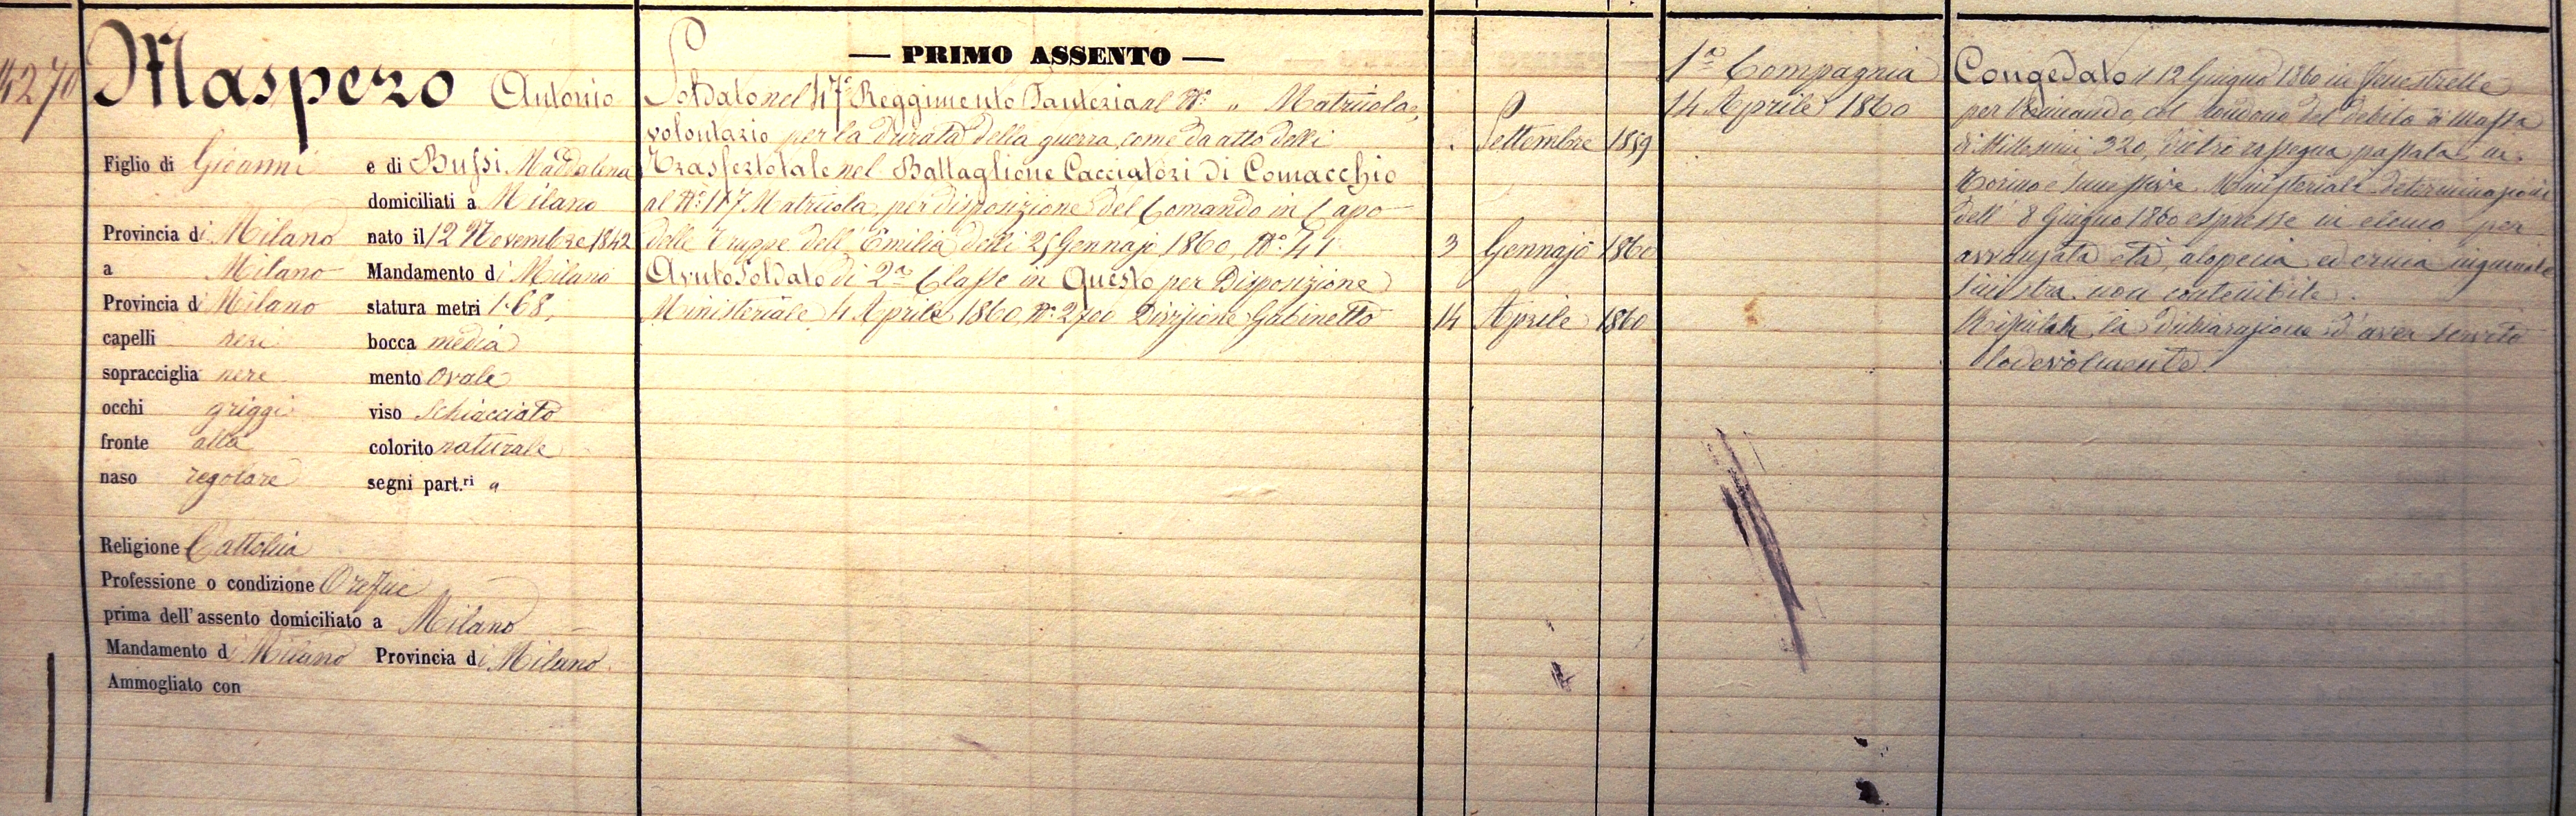 4270
Maspero Antonio
Figlio di Giovanni e di Bussi Maddalena
domiciliati a Milano
Provincia di Milano nato il 12 Novembre 1842
a Milano Mandamento di Milano
Provincia di Milano statura metri 1.68.
capelli neri bocca media
sopracciglia nere mento ovale
occhi griggi viso Schiacciato
fronte alta colorito naturale
naso regolare segni part.ri "
Religione Cattolica
Professione o condizione Orefice
prima dell'assento domiciliato a Milano
Mandamento di Milano Provincia di Milano
Ammogliato con
— PRIMO ASSENTO —
Soldato nel 47° Reggimento Fanteria al N° " Matricola,
volontario per la durata della guerra, come da atto delli
. Settembre 1859
Trasferto tale nel Battaglione Cacciatori di Comacchio
al N° 117 Matricola, per disposizione del Comando in Capo
delle Truppe dell'Emilia delli 25 Gennajo 1860, N° 41
3 Gennajo 1860
Avuto Soldato di 2a Classe in Questo per Disposizione
Ministeriale 4 Aprile 1860 N° 2700 Divisione Gabinetto
14 Aprile 1860
1a Compagnia
14 Aprile 1860
Congedato il 12 Giugno 1860 in Fenestrelle
per rimando, col condono del debito di massa
di Millesimi 320, dietro rassegna passata in
Torino e Ministeriale determinazione
dell' 8 Giugno 1860 espresse in elenco per
età, alopecia ed ernia inguinale
sinistra non contenibile.
la dichiarazione d'aver servito
lodevolmente.